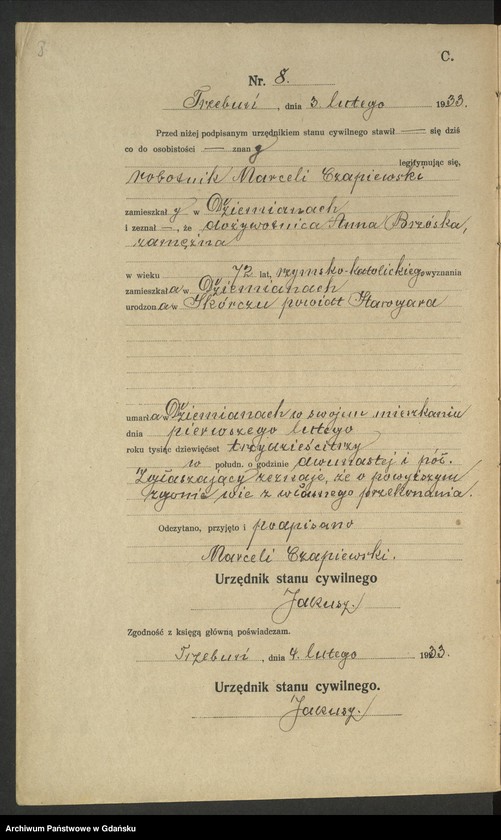 3
C.
Nr. 8.
Trzebuń, dnia 3. lutego 1933.
Przed niżej podpisanym urzędnikiem stanu cywilnego stawił — się dziś
co do osobistości — znany
legitymując się,
robotnik Marceli Czapiewski
zamieszkały w Dziemianach
i zeznał —, że dożywotnica Anna Brzóska,
zamężna
w wieku 72 lat, rzymsko-katolickiego wyznania
zamieszkała w Dziemianach
urodzona w Skórczu powiat Starogard
umarła w Dziemianach w swojem mieszkaniu
dnia pierwszego lutego
roku tysiąc dziewięćset trzydzieścitrzy
w połudn. o godzinie dwunastej i pół.
Zgłaszający zeznaje, że o powyższym
zgonie wie z własnego przekonania.
Odczytano, przyjęto i podpisano
Marceli Czapiewski.
Urzędnik stanu cywilnego
Jakusz.
Zgodność z księgą główną poświadczam.
Trzebuń, dnia 4. lutego 1933.
Urzędnik stanu cywilnego.
Jakusz.
Archiwum Państwowe w Gdańsku